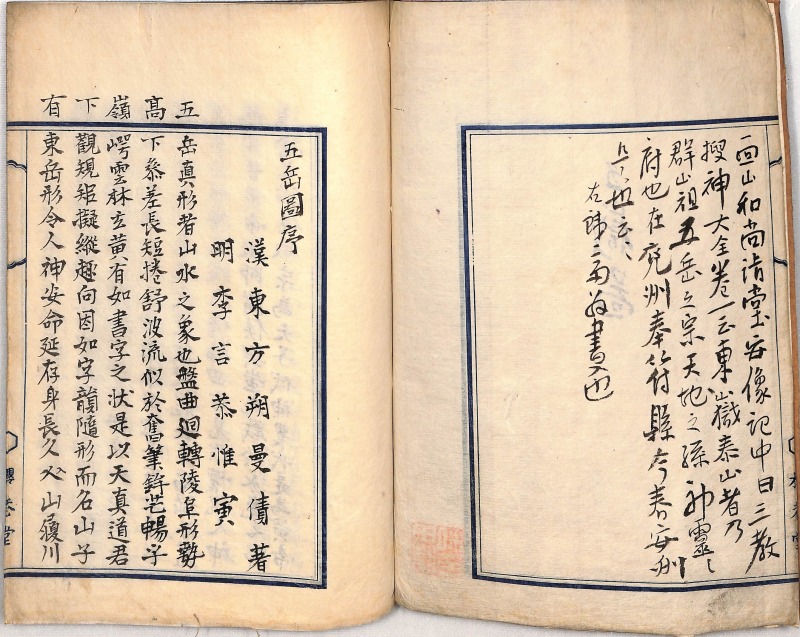 面山和尚清堂安像記中曰三教
搜神大全卷一云東嶽泰山者乃
群山祖五岳之宗天地之孫神靈之
府也在兗州奉符縣今泰安州
是也云々
右 書入也
五岳圖序
漢東方朔曼倩著
明李言恭惟寅
五岳真形者山水之象也盤曲迴轉陵阜形勢
高下叅差長短捲舒波流似於奮筆鋒芒暢乎
嶺崿雲林玄黃有如書字之狀是以天真道君
下觀規矩擬縱趣向因如字韻隨形而名山子
有東岳形令人神安命延存身長久入山履川